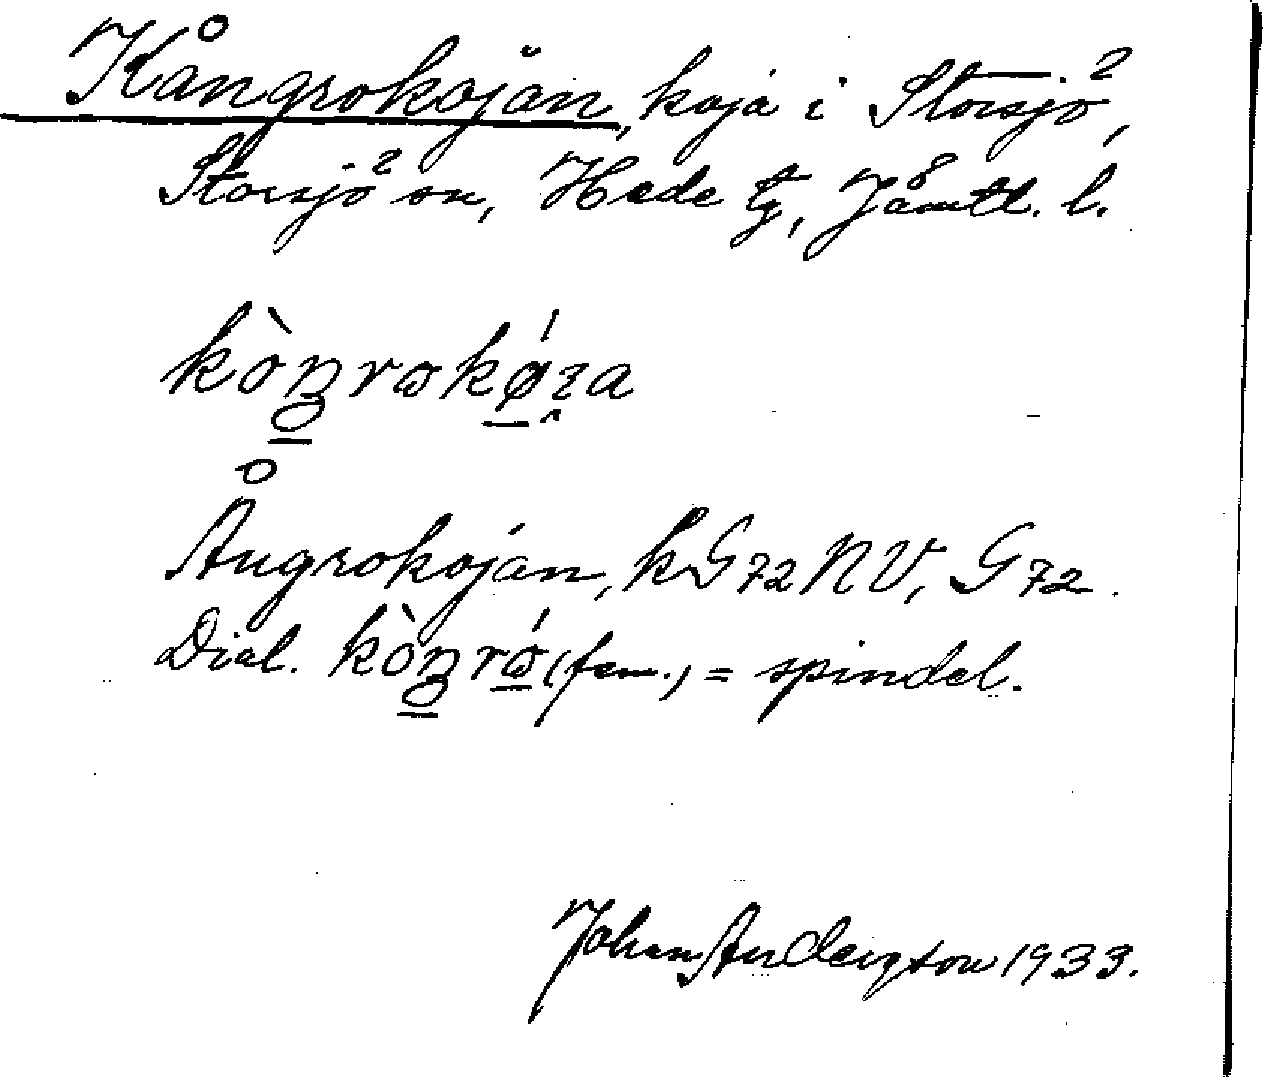 Kångrokojan, koja i Storsjö,
Storsjö sn, Hede tg, Jämtl. l.
Ångrokojan, k G72 NV, G72.
Dial. (fem.) = spindel.
Johan Andersson 1933.